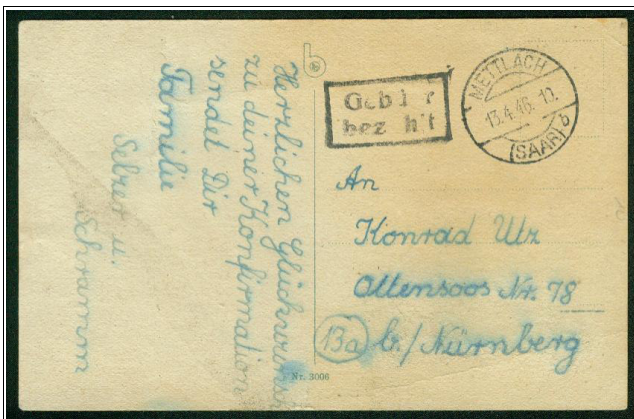 Herzlichen Glückwunsch
zu deiner Konfirmation
sendet Dir
Familie
Selzer u.
Schramm
Nr. 3006
Geb r
bez hlt
METTLACH
13.4.46.10
(SAAR) b
An
Konrad Utz
Ottensoos Nr. 78
13a b./Nürnberg